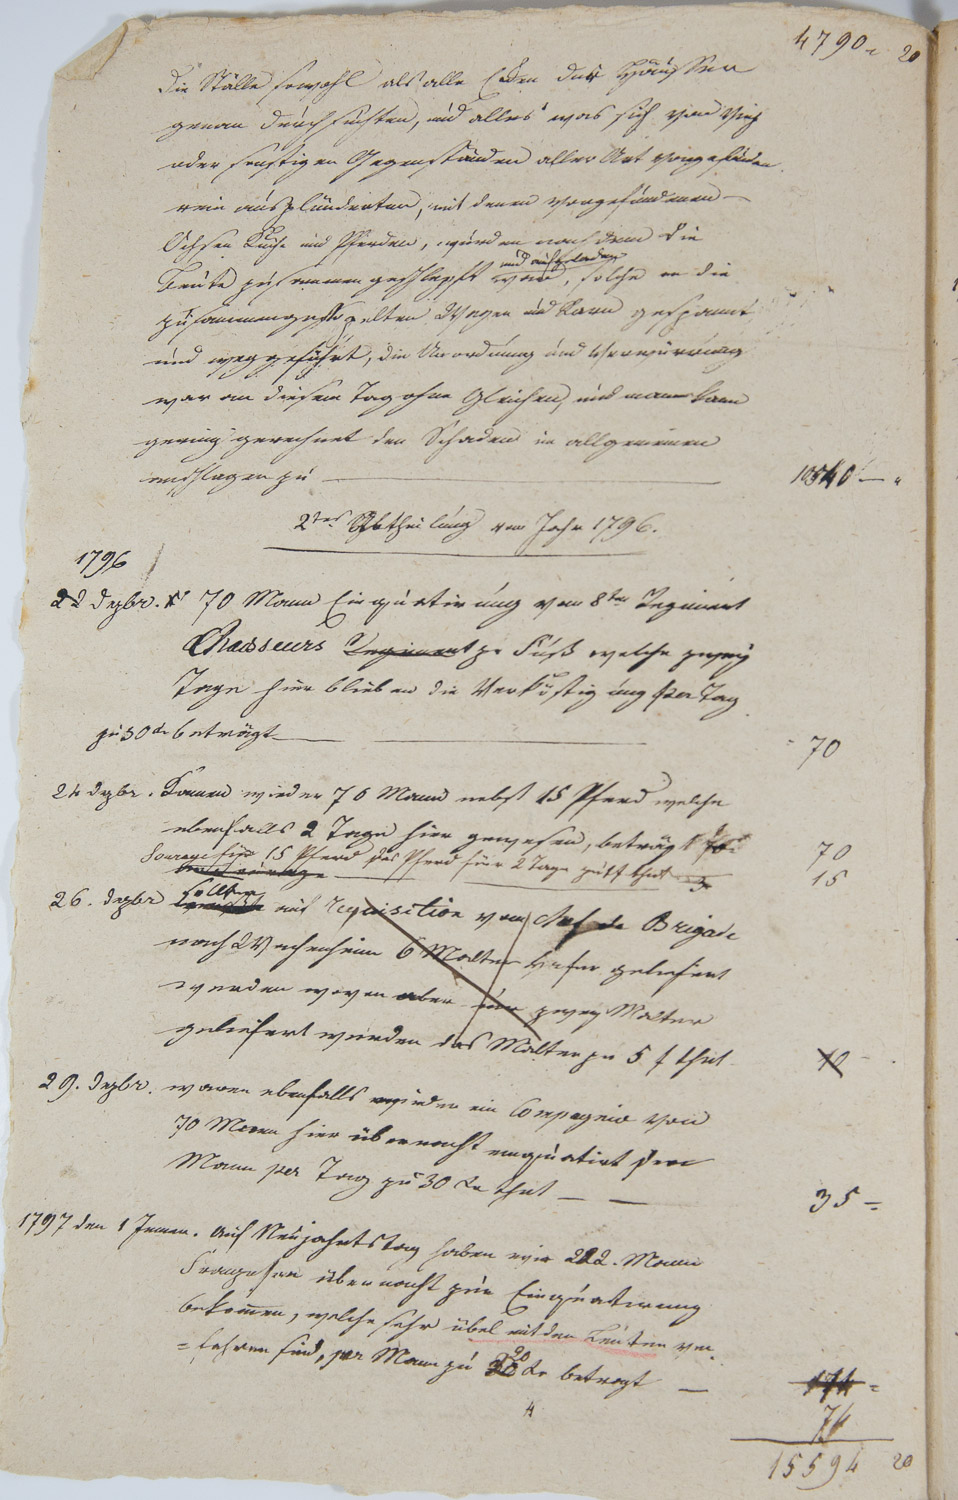 4790 = 20
Die Ställe sowohl als alle Ecken der Häusser
genau durchsuchten, und alles was sich von Vieh
oder sonstigen Gegenständen aller Art vorgefunden
rein ausplünderten, mit denen vorgefundenen
Ochsen Kuhe und Pferden, wurden nachdem die
und aufgeladen
Beute zusammen geschleppt war, solche an die
zusammengestoppelten Wagen und Karn gespannt
und weggeführt, die Unordnung und Verwirrung
war an diesem Tag ohne Gleichen, und man kann
gering gerechnet den Schaden im allgemeinen
anschlagen zu — 10540 —
2tes Abtheilung vom Jahr 1796.
1796
22 Dezbr. 70 Mann Einquartirung vom 8ten Regiment
Chasseurs Regiment zu Fuß welche zwey
Tage hier blieben die Verköstigung per Tag
zu 30 beträgt — 70
24 Dezbr. Kamen wieder 70 Mann nebst 15 Pferd welche
ebenfalls 2 Tage hier gewesen, beträgt 70
Fourage für 15 Pferd das Pferd für 2 Tage thut 15
26. Dezbr sollten auf Requisition vom Chef de Brigade
nach Wachenheim 6 Malter Hafer geliefert
werden wovon aber nur zwey Malter
geliefert wurden das Malter zu 5 f thut 10
29. Dezbr. waren ebenfalls wieder ein Compagnie von
70 Mann hier übernacht einquatirt per
Mann per Tag zu 30 Kr thut — 35 =
1797 den 1 Jenner. Auf Neujahrtstag haben wir 222. Mann
Franzosen übernacht zur Einquatirung
bekommen, welche sehr übel mit den Leuten ver
= fahren sind, per Mann zu 20 Kr betragt —
174 =
74
15594 20